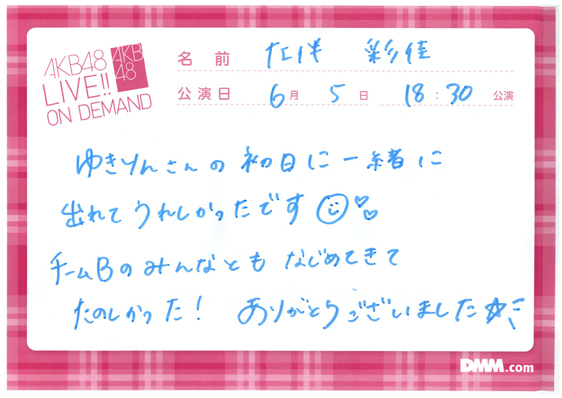 AKB48
LIVE!!
ON DEMAND
AKB
48
名前 彩佳
公演日 6月5日 18:30 公演
ゆきりんさんの初日に一緒に
出れてうれしかったです
チームBのみんなとも なじめてきて
たのしかった! ありがとうございました
DMM.com